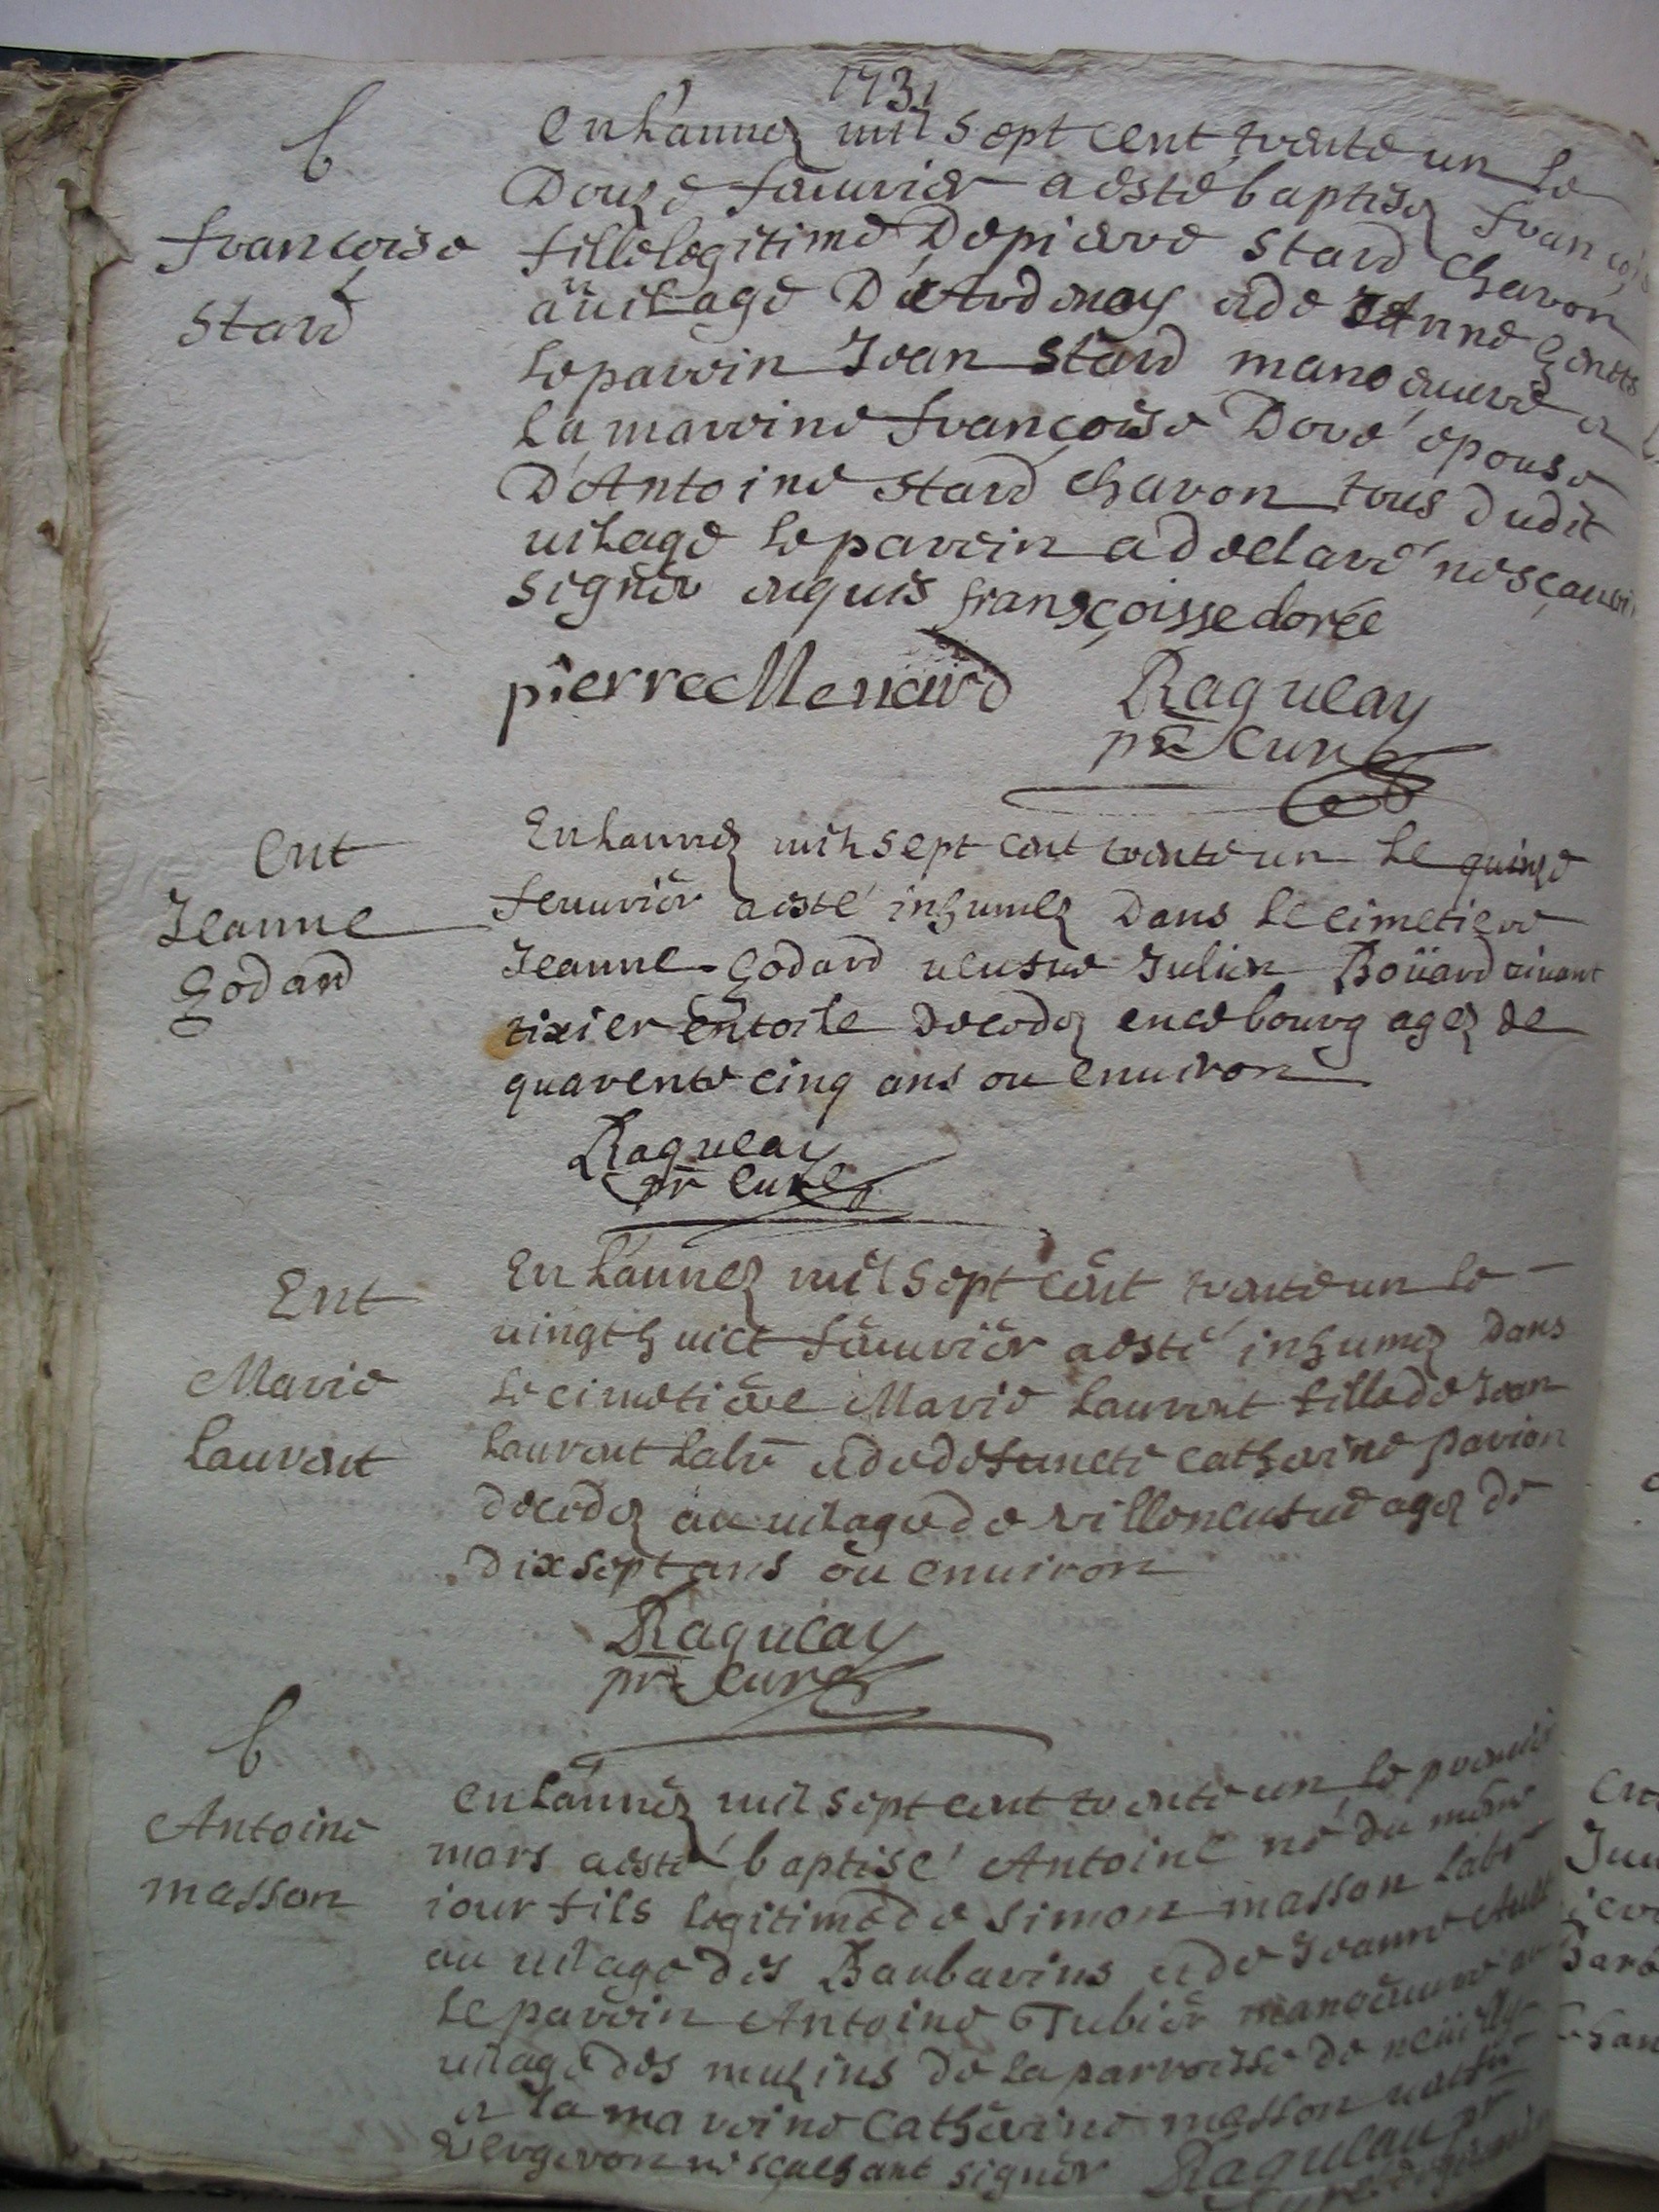 1731
b
françoise
Stard
En L'annez mil Sept cent trente un le
Douze Januier a esté baptisez
fille legitime De pierre Stard charon
au uilage D'Ardenay et de Jeanne
le parein Jean Stard maneuure et
La mareine françoise Doré épouse
D'Antoine Stard charon tous dudit
uilage le parein a declaré ne sçauoir
signer enquis françoisse dorée
pierre Menard Ragueau
pr Curé
Ent
Jeanne
Godard
En Lannez mil sept cent trente un le quinze
Januier a esté inhumez Dans le cimetiere
Jeanne Godard ueusue Julien Boüard uiuant
tixier en toile decedez en ce bourg agez de
quarente cinq ans ou enuiron
Ragueau
pr Curé
Ent
Marie
Laurent
En L'annez mil Sept cent trente un le
uingt huict Januier a esté inhumez Dans
le cimetiere Marie Laurent fille de Jean
Laurent Labr et de defuncte catherine parion
decedez au uilage de villeneusue agez de
dix sept ans ou enuiron
Ragueau
pr Curé
b
Antoine
masson
En L'annez mil sept cent trente un le premier
mars a esté baptisé Antoine né du même
iour fils legitime de Simon masson Labr
au uilage des Barbarins et de Jeanne
le parein Antoine Tubier maneuure au
uilage des muzins de la parroisse de neüilly
et la mareine Catherine masson
ne sçachant signer Ragueau pr